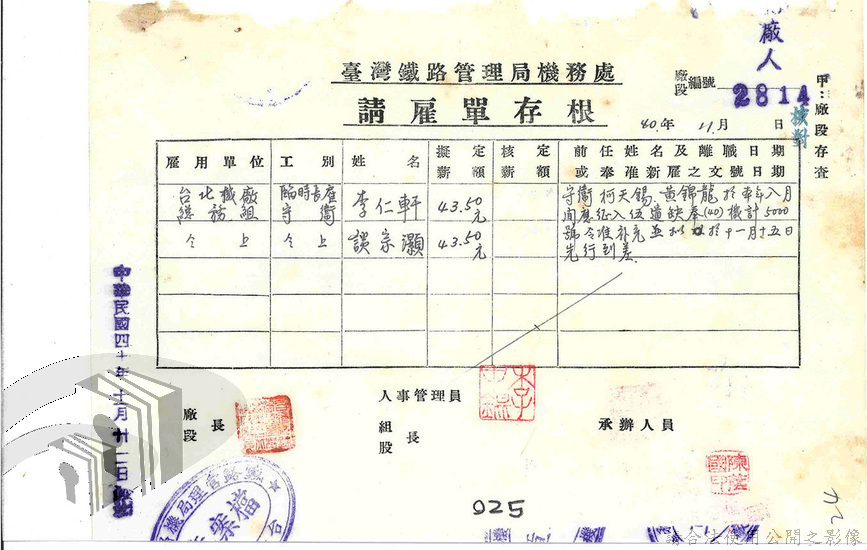 廠人
2814
核對
臺灣鐵路管理局機務處
廠段編號
請雇單存根
甲:廠段存查
40年 11月 日
雇用單位 工別 姓名 擬定薪額 核定薪額 前任姓名及離職日期或奉准新雇之文號日期
台北機廠總務組 臨時長雇守衛 李仁軒 43.50元
仝上 仝上 談宗灝 43.50元
守衛柯天錫、黃錦龍於本年八月
間應征入伍遺缺奉(40)機計5000
號令准补充並拟於十一月十五日
先行到差
中華民國四十年十一月廿二日
廠段長
人事管理員
組股長
承辦人員
025
鐵路管理局機
檔案
請合法使用公開之影像